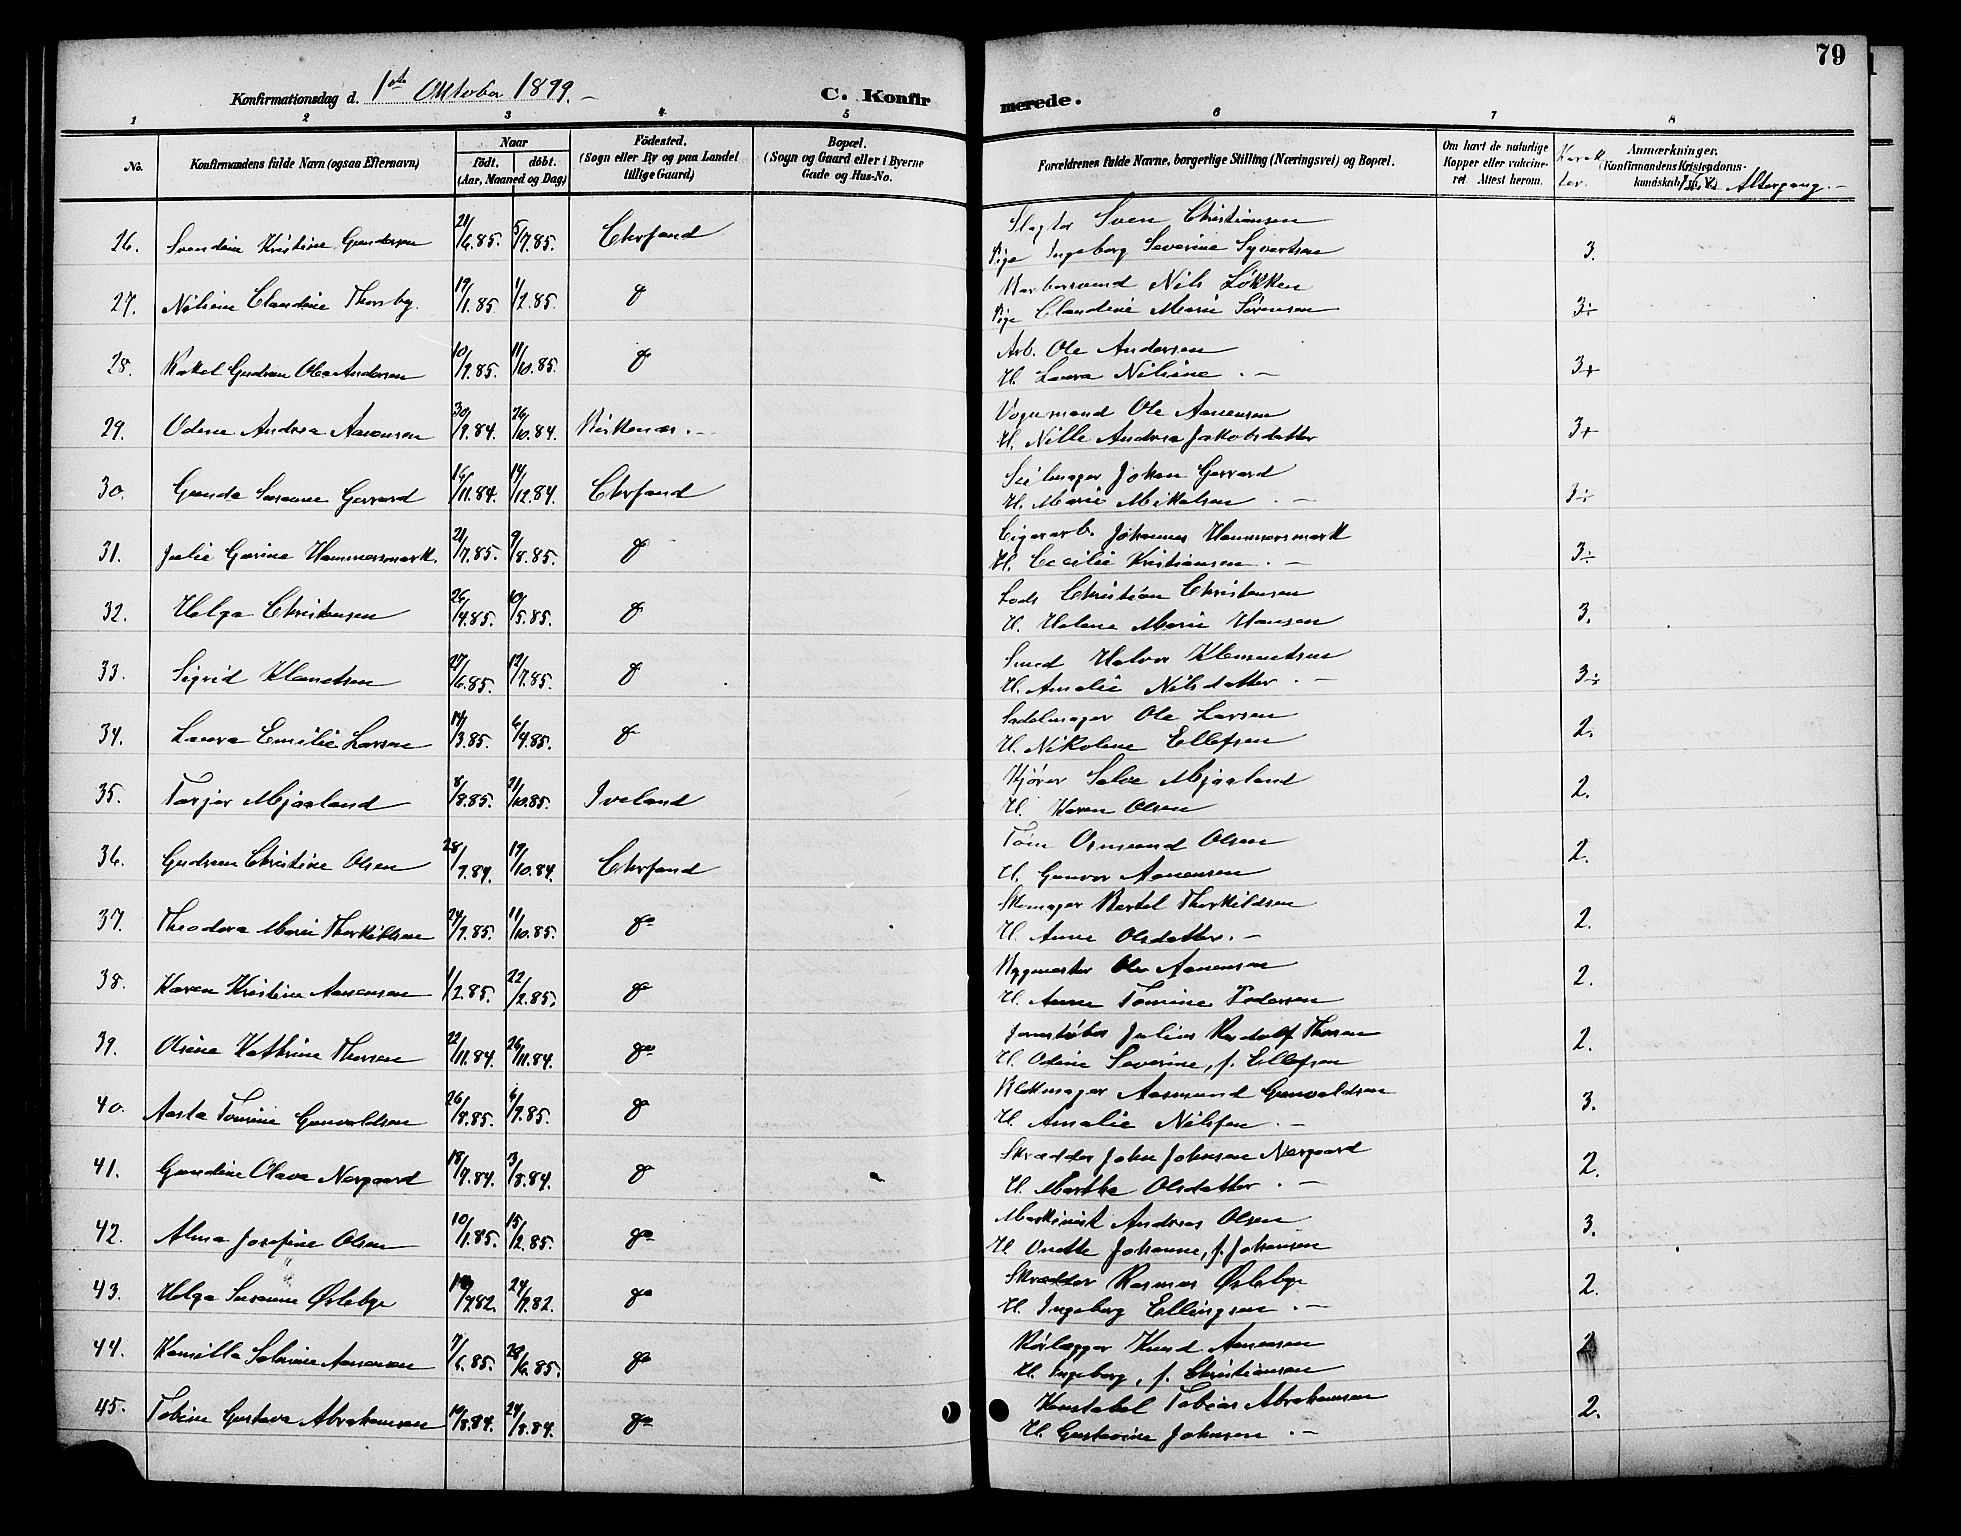 79
Konfirmationsdag d. 1ste Oktober 1899.-
C. Konfirmerede.
1 2 3 4 5 6 7 8
No.
Konfirmandens fulde Navn (ogsaa Efternavn)
Naar
født. døbt.
(Aar, Maaned og Dag)
Födested.
(Sogn eller By og paa Landet
tillige Gaard)
Bopæl.
(Sogn og Gaard eller i Byerne
Gade og Hus-No.
Forældrenes fulde Navne, borgerlige Stilling (Næringsvei) og Bopæl.
Om havt de naturlige
Kopper eller vakcine-
ret. Attest herom.
Karak
ter.
Anmærkninger,
Konfirmandens Kristendoms-
kundskab Altergang.-
26. Svendine Kristine Gundersen 21/6.85. 5/7.85. Chrsand Slagter Sven Christiansen
Pige Ingeborg Severine Syvertsen 3.
27. Nilsine Claudine Thorsby. 19/1.85 1/2.85. do Nils Løkken
Pige Claudine Marie Sørensen 3÷
28. Rakel Gudrun Olea Andersen 10/9.85. 11/10.85. do Arb. Ole Andersen
H. Laura Nilsine . - 3+
29. Odene Andrea Aanensen 30/9.84. 26/10.84. Birkenæs.- Vognmand Ole Aanensen
H. Nille Andrea Jakobsdatter 3+
30. Gunda Susanne Gerrard 16/11.84. 14/12.84. Chrsand Seilmager Johan Gerrard
H. Marie Mikalsen . - 3÷
31. Julie Gurine Hammersmark. 21/7.85. 9/8.85. do Cigararb. Johannes Hammersmark
H. Cecilie Kristiansen . - 3÷
32. Helga Christensen 26/4.85. 10/5.85. do Lods Christian Christensen
H. Helene Marie Hansen 3.
33. Sigrid Klemetsen 27/6.85. 12/7.85. do Smed Halvor Klementsen
H. Amalie Nilsdatter . - 3÷
34. Laura Emilie Larsen 14/3.85. 6/4.85. do Sadelmager Ole Larsen
H. Nikoline Ellefsen 2.
35. Tarjer Mjaaland 8/8.85. 21/10.85. Iveland Kjører Salve Mjaaland
H. Karen Olsen 2.
36. Gudrun Christine Olsen 28/9.84. 19/10.84. Chrsand Tøm Osmund Olsen
H. Gunvor Aanensen 2.
37. Theodora Marie Thorkildsen 24/9.85. 11/10.85. do Skomager Bertel Thorkildsen
H. Anne Olsdatter.- 2.
38. Karen Kristine Aanensen 1/2.85. 22/2.85. do Bygmester Ole Aanensen
H. Anne Tomine Pedersen 2.
39. Olsine Kathrine Thorsen 22/11.84. 26/11.84. do Jernstøber Julius Rudolf Thorsen
H. Odine Severine, f. Ellefsen 2.
40. Aasta Tomine Gunvaldsen 26/8.85. 6/9.85. do Blokmager Aasmund Gunvaldsen
H. Amalie Nilssen . - 3.
41. Gundine Olava Norgaard 18/7.84. 3/8.84. do Skrædder John Johnsen Norgaard
H. Marthe Olsdatter . - 2.
42. Alma Josefine Olsen 10/1.85. 15/2.85. do Maskinist Andreas Olsen
H. Onette Johanne, f. Johansen 3.
43. Helga Susanne Øslebye /7.82. 24/9.82. do Skrædder Rasmus Øslebye
H. Ingeborg Ellingsen . - 2.
44. Kamilla Sabine Aanensen 7/6.85. 28/6.85. do Rørlægger Knud Aanensen
H. Ingeborg, f. Christiansen 2
45. Tobine Gustava Abrahamsen 10/8.84. 24/8.84. do Konstabel Tobias Abrahamsen
H. Gustavine Johnsen . - 2.